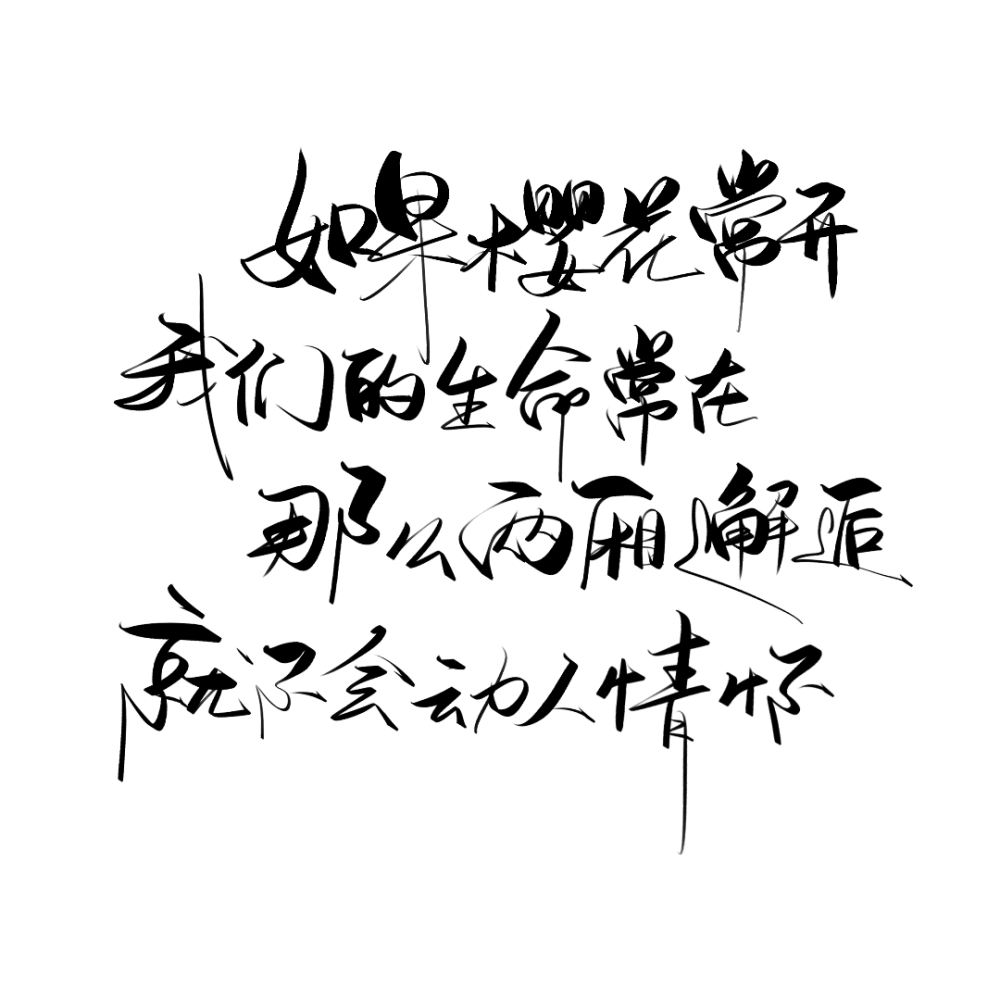 如果樱花常开
我们的生命常在
那么两厢邂逅
就不会动人情怀